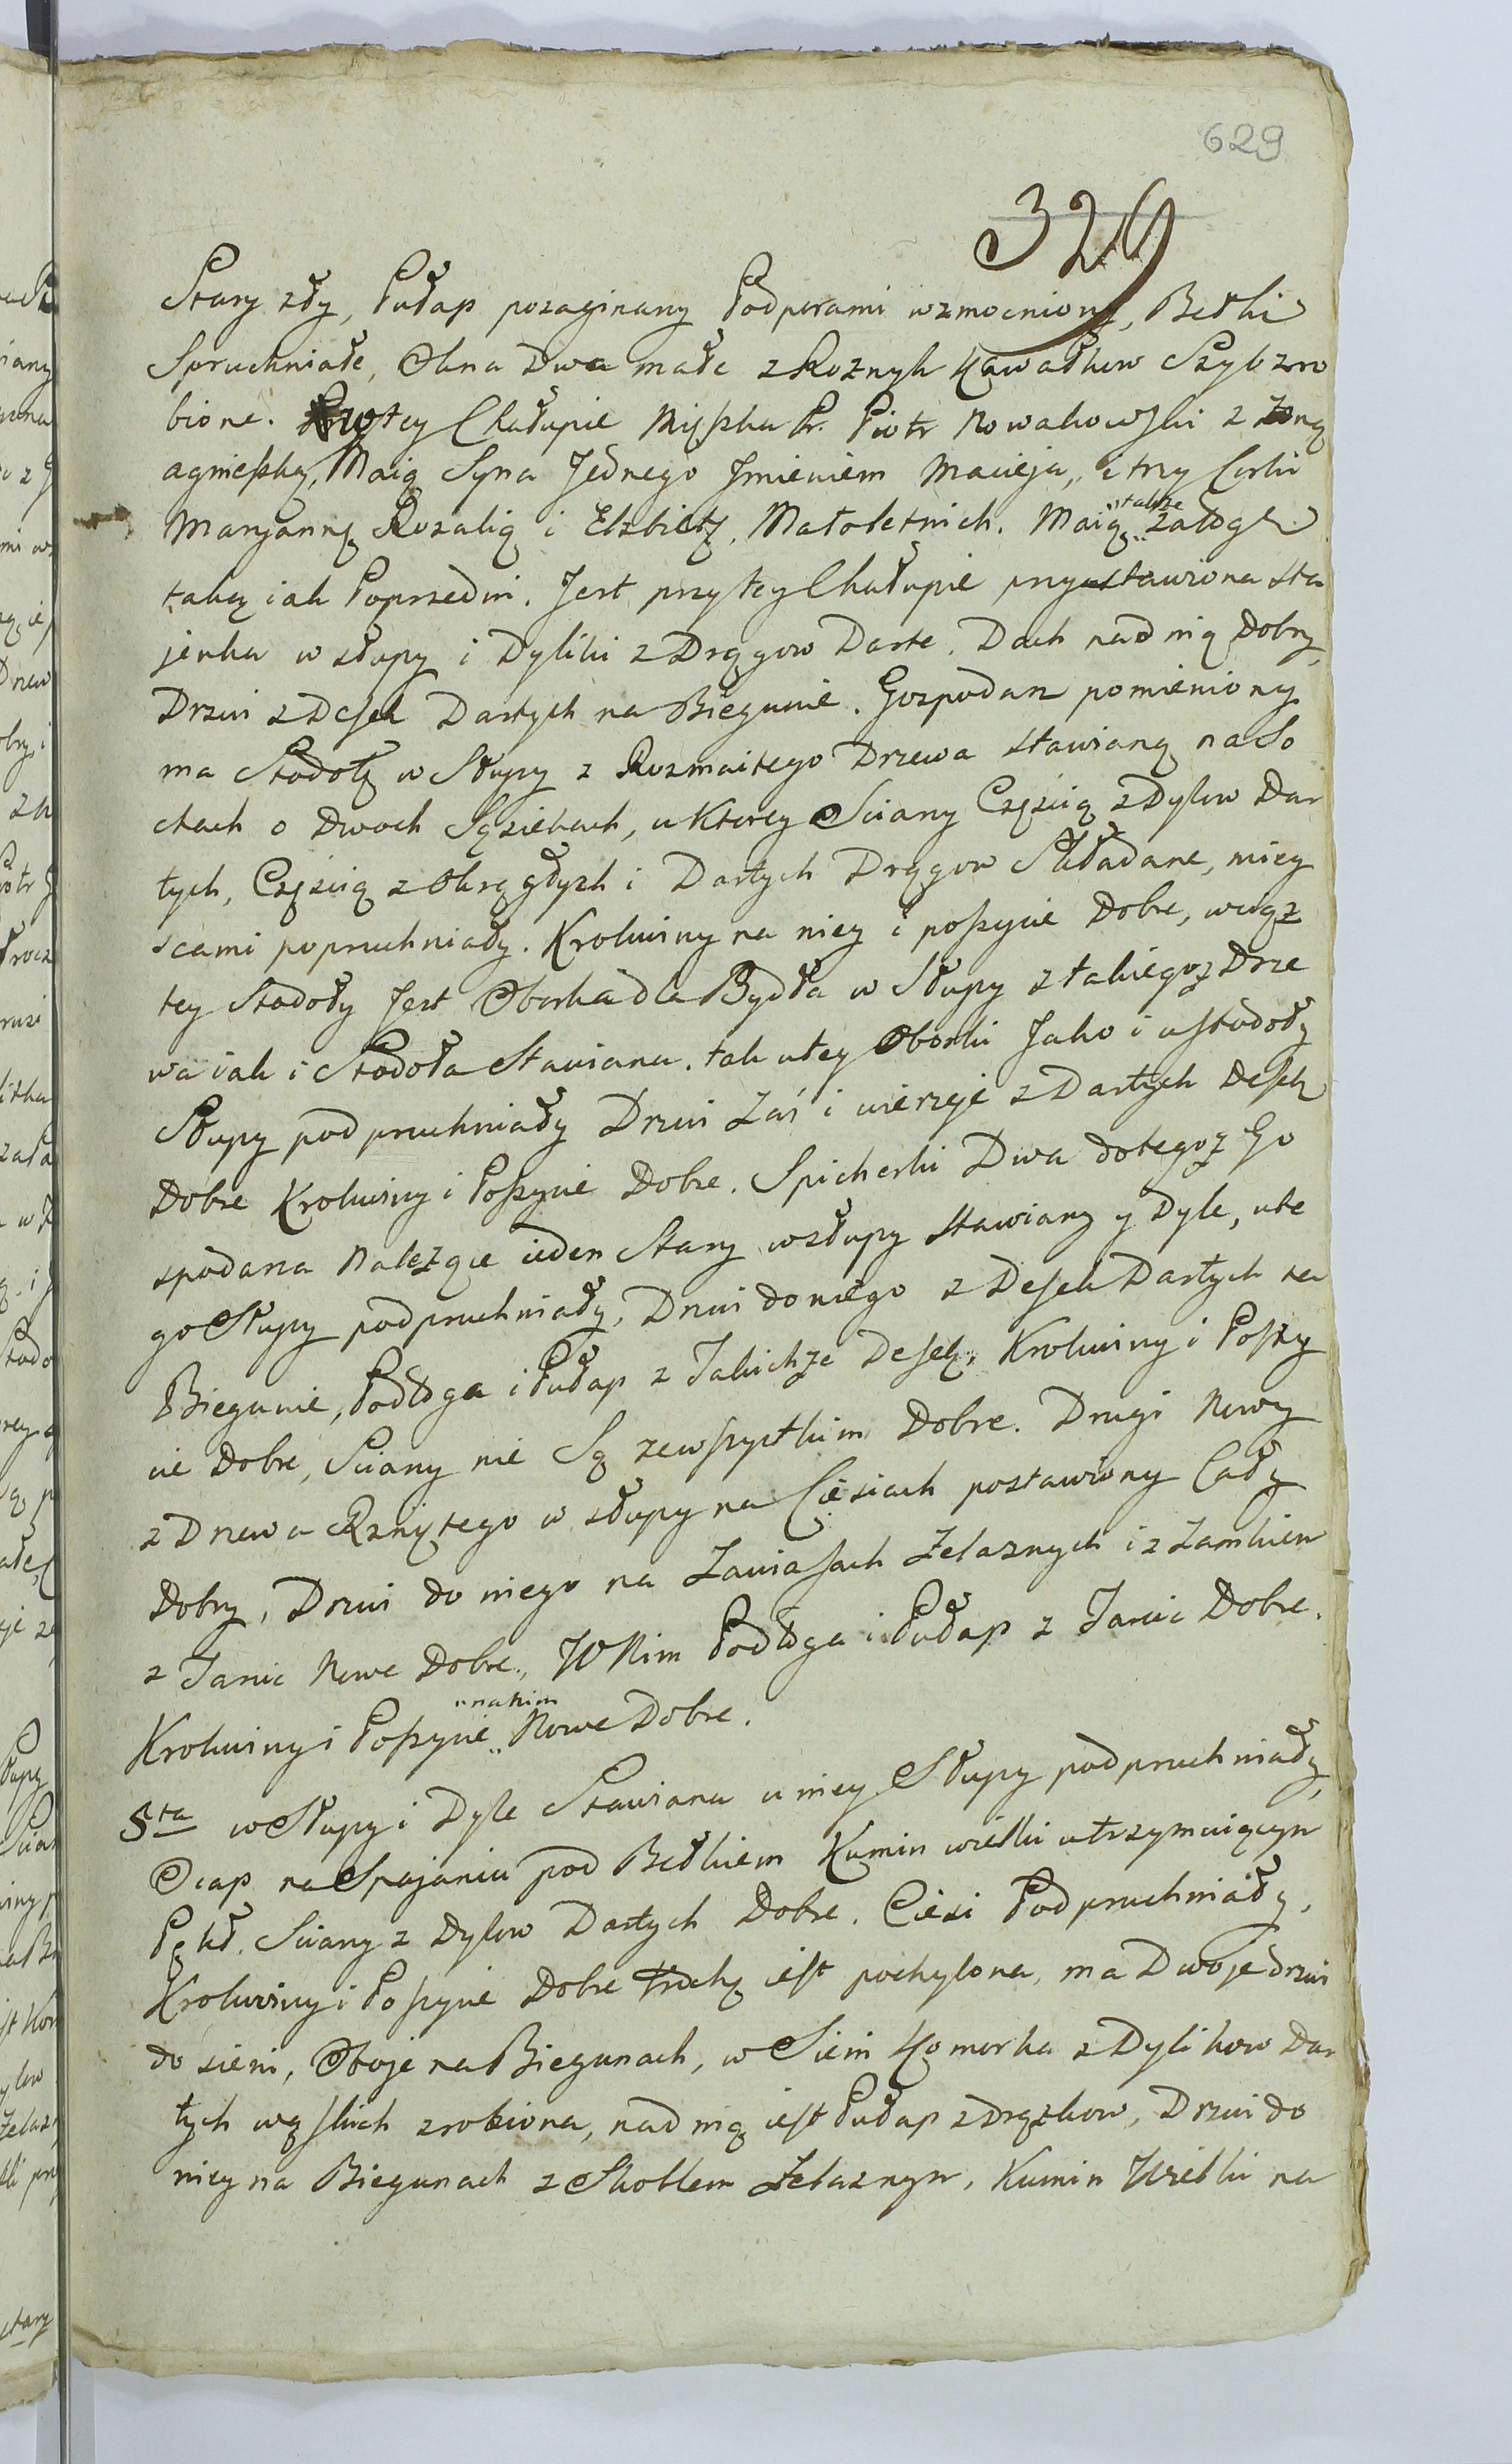 629
329
Stary zły, Pułap pozaginany Podporami wzmocniony, Belki
Spruchniałe, Okna Dwa małe z Roznych Kawałkow Szyb zro
bione. w tey Chałupie Miszka Pr. Piotr Nowakowski z zoną
agnieszką, Maią Syna Jednego Jmieniem Macieja, i trzy Corki
Maryannę Rozalią i Elzbietę, Małoletnich. Maią „takze„ załogę
taką iak Poprzedni. Jest przy tey Chałupie przystawiona sta
jenka w słupy i Dyliki z Drągow Darte. Dach nad nią Dobry,
Drzwi z Desek Dartych na Biegunie. Gospodarz pomieniony
ma Stodołę w Słupy z Rozmaitego Drzewa stawianą na So
chach o Dwoch Sąsiekach, u Ktorey Sciany Częścią z Dylow Dar
tych, Częścią z Okrągłych i Dartych Drągow Składane, miey
scami popruchniały. Krokwiny na niey i poszycie Dobre, wciąż
tey Stodoły Jest Oborka dla Bydła w Słupy z takiegoż Drze
wa iak i Stodoła Stawiana. tak u tey Oborki Jako i u Stodoły
Słupy podpruchniały Drzwi Zaś i wierzeje z Dartych Desek
Dobre Krokwiny i Poszycie Dobre. Spicherki Dwa do tegoż Go
spodarza Należące ieden Stary w słupy stawiany y Dyle, u te
go Słupy podpruchniały, Drzwi do niego z Desek Dartych na
Biegunie, Podłoga i Pułap z Takichże Desek, Krokwiny i Poszy
cie Dobre, Sciany nie Są zewszystkim Dobre. Drugi Nowy
z Drzewa Rzniętego w słupy na Ciesiach postawiony Cały
Dobry, Drzwi do niego na Zawiasach Zelaznych i z Zamkiem
z Tarcic Nowe Dobre, W Nim Podłoga i Pułap z Tarcic Dobre.
Krokwiny i Poszycie „na nim„ Nowe Dobre.
8ta w Słupy i Dyle Stawiana u niey Słupy podpruchniały,
Ocap na Spajaniu pod Belkiem Kumin wielki utrzymuiącym
Pękł. Sciany z Dylow Dartych Dobre. Ciesi Podpruchniały,
Krokwiny i Poszycie Dobre Trochę iest pochylona, ma Dwoje drzwi
do sieni, Oboje na Biegunach, w Sieni Komorka z Dylikow Dar
tych wąskich zrobiona, nad nią iest Pułap z drążkow, Drzwi do
niey na Biegunach z Skoblem Zelaznym, Kumin Wielki na